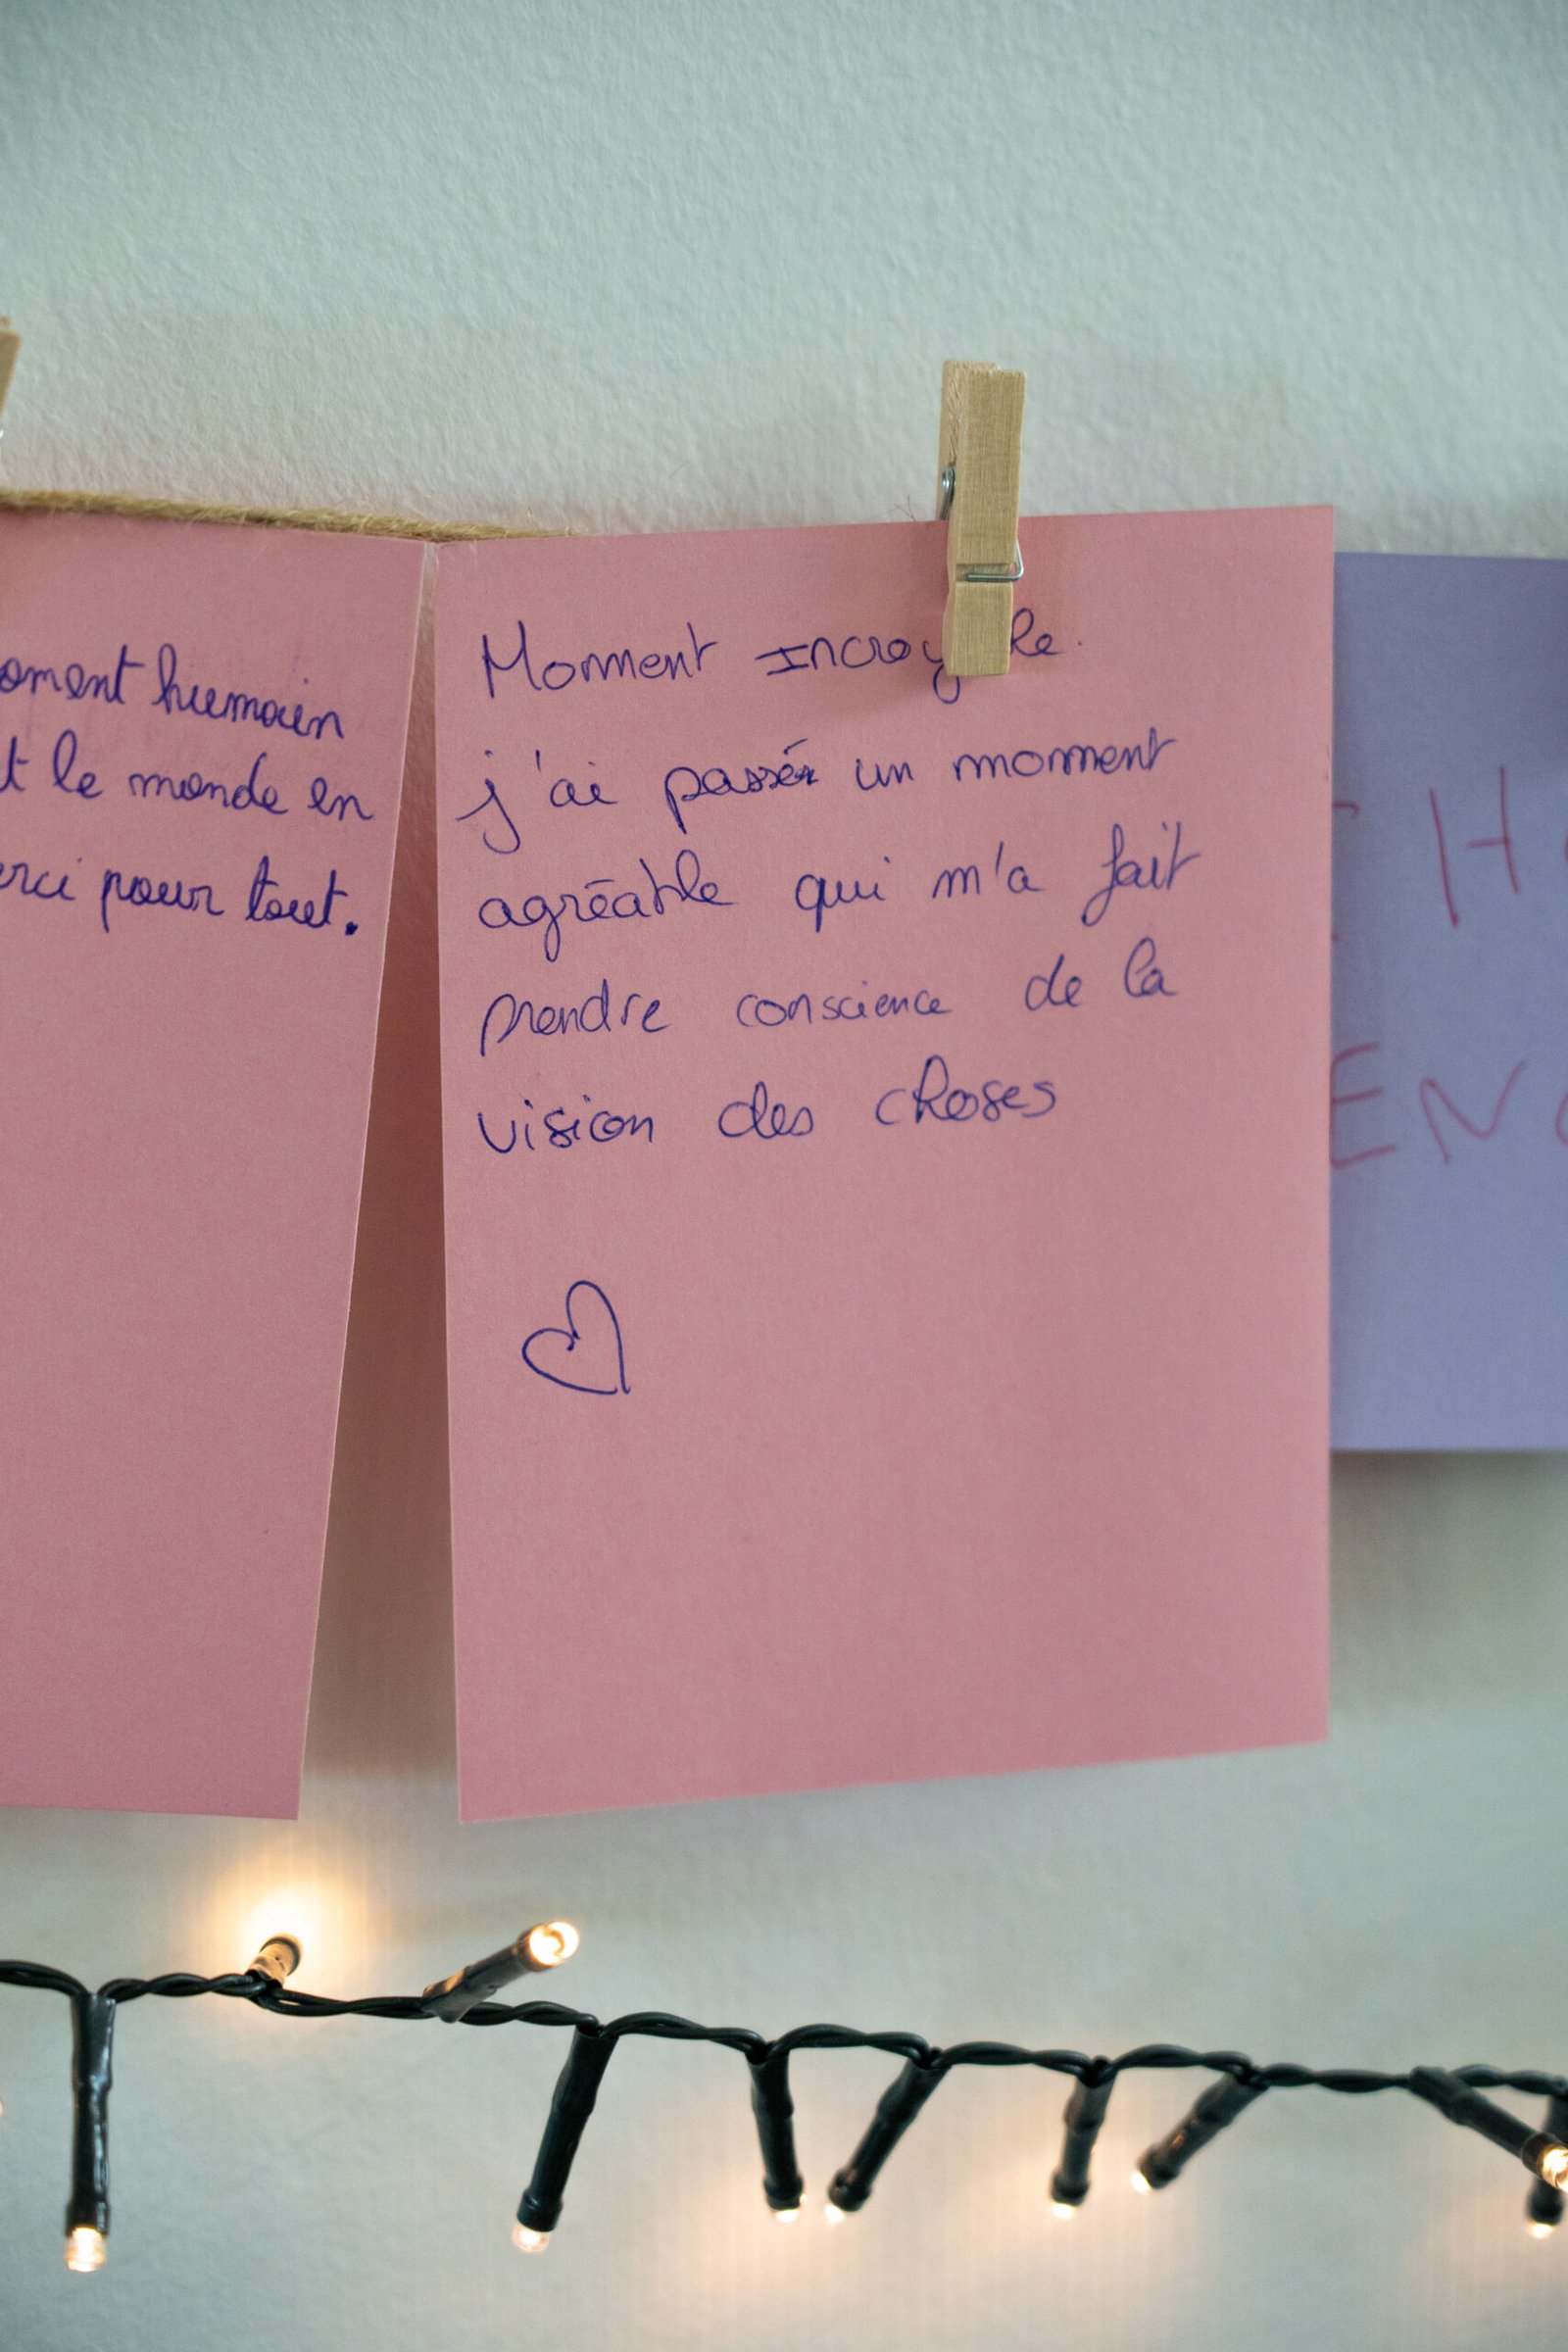 oment humain
t le monde en
erci pour tout.
Moment Incroy le.
j'ai passé un moment
agréable qui m'a fait
prendre conscience de la
vision des choses
H
EN